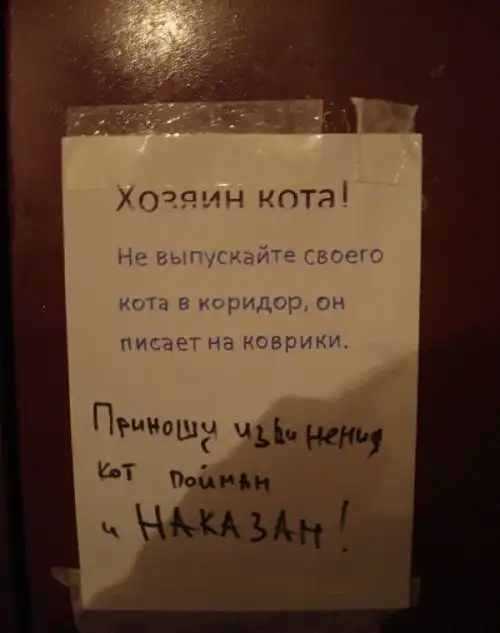 Хозяин кота!
Не выпускайте своего
кота в коридор, он
писает на коврики.
Приношу извинения
кот пойман
и НАКАЗАН!